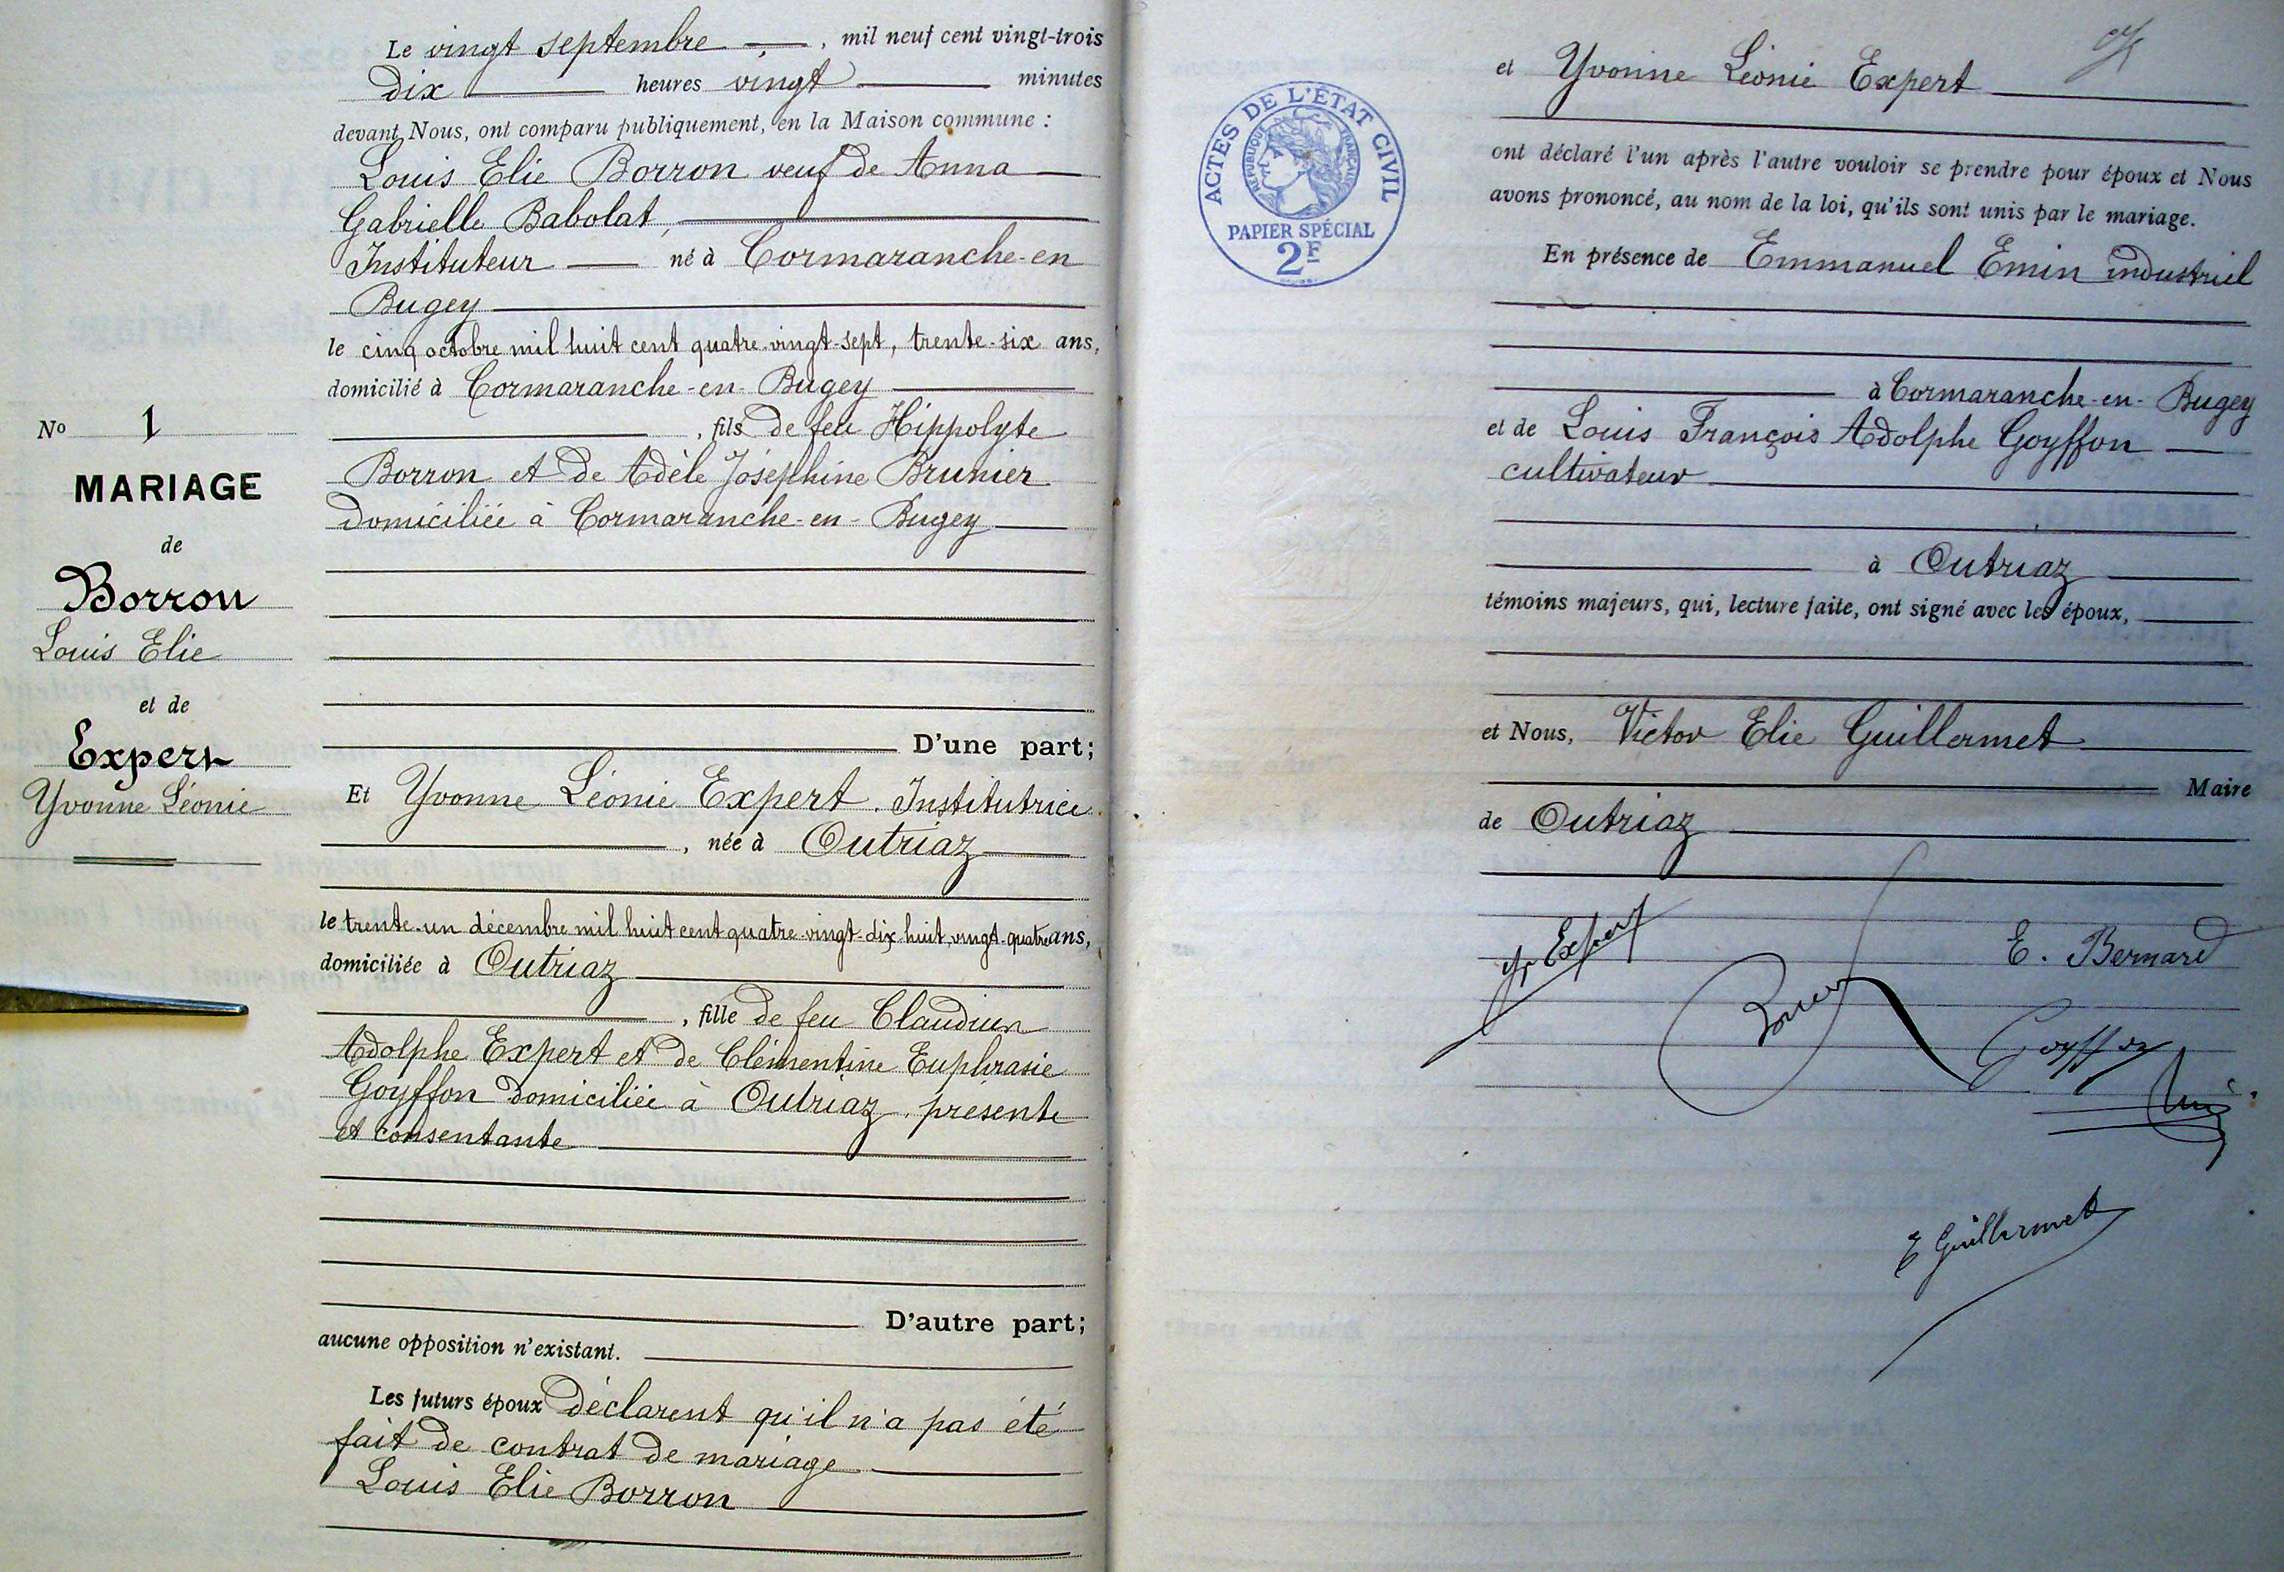 Le vingt septembre, mil neuf cent vingt-trois
dix heures vingt minutes
devant Nous, ont comparu publiquement, en la Maison commune :
Louis Elie Borron veuf de Anna
Gabrielle Babolat,
Instituteur né à Cormaranche-en
Bugey
le cinq octobre mil huit cent quatre-vingt-sept, trente-six ans,
domicilié à Cormaranche-en-Bugey
, fils de feu Hippolyte
Borron et de Adèle Joséphine Brunier
domiciliée à Cormaranche-en-Bugey
No 1
MARIAGE
de
Borron
Louis Elie
et de
Expert
Yvonne Léonie
D'une part;
Et Yvonne Léonie Expert. Institutrice
, née à Outriaz
le trente-un décembre mil huit cent quatre-vingt-dix huit, vingt-quatre ans,
domiciliée à Outriaz
, fille de feu Claudien
Adolphe Expert et de Clémentine Euphrasie
Goyffon domiciliée à Outriaz, présente
et consentante
D'autre part;
aucune opposition n'existant.
Les futurs époux déclarent qu'il n'a pas été
fait de contrat de mariage
Louis Elie Borron
ACTES DE L'ÉTAT CIVIL
RÉPUBLIQUE FRANÇAISE
PAPIER SPÉCIAL
2F
et Yvonne Léonie Expert
ont déclaré l'un après l'autre vouloir se prendre pour époux et Nous
avons prononcé, au nom de la loi, qu'ils sont unis par le mariage.
En présence de Emmanuel Emin industriel
à Cormaranche-en-Bugey
et de Louis François Adolphe Goyffon
cultivateur
à Outriaz
témoins majeurs, qui, lecture faite, ont signé avec les époux,
et Nous, Victor Elie Guillermet
Maire
de Outriaz
Y. Expert
E. Bernard
Borron
Goyffon
E Guillermet